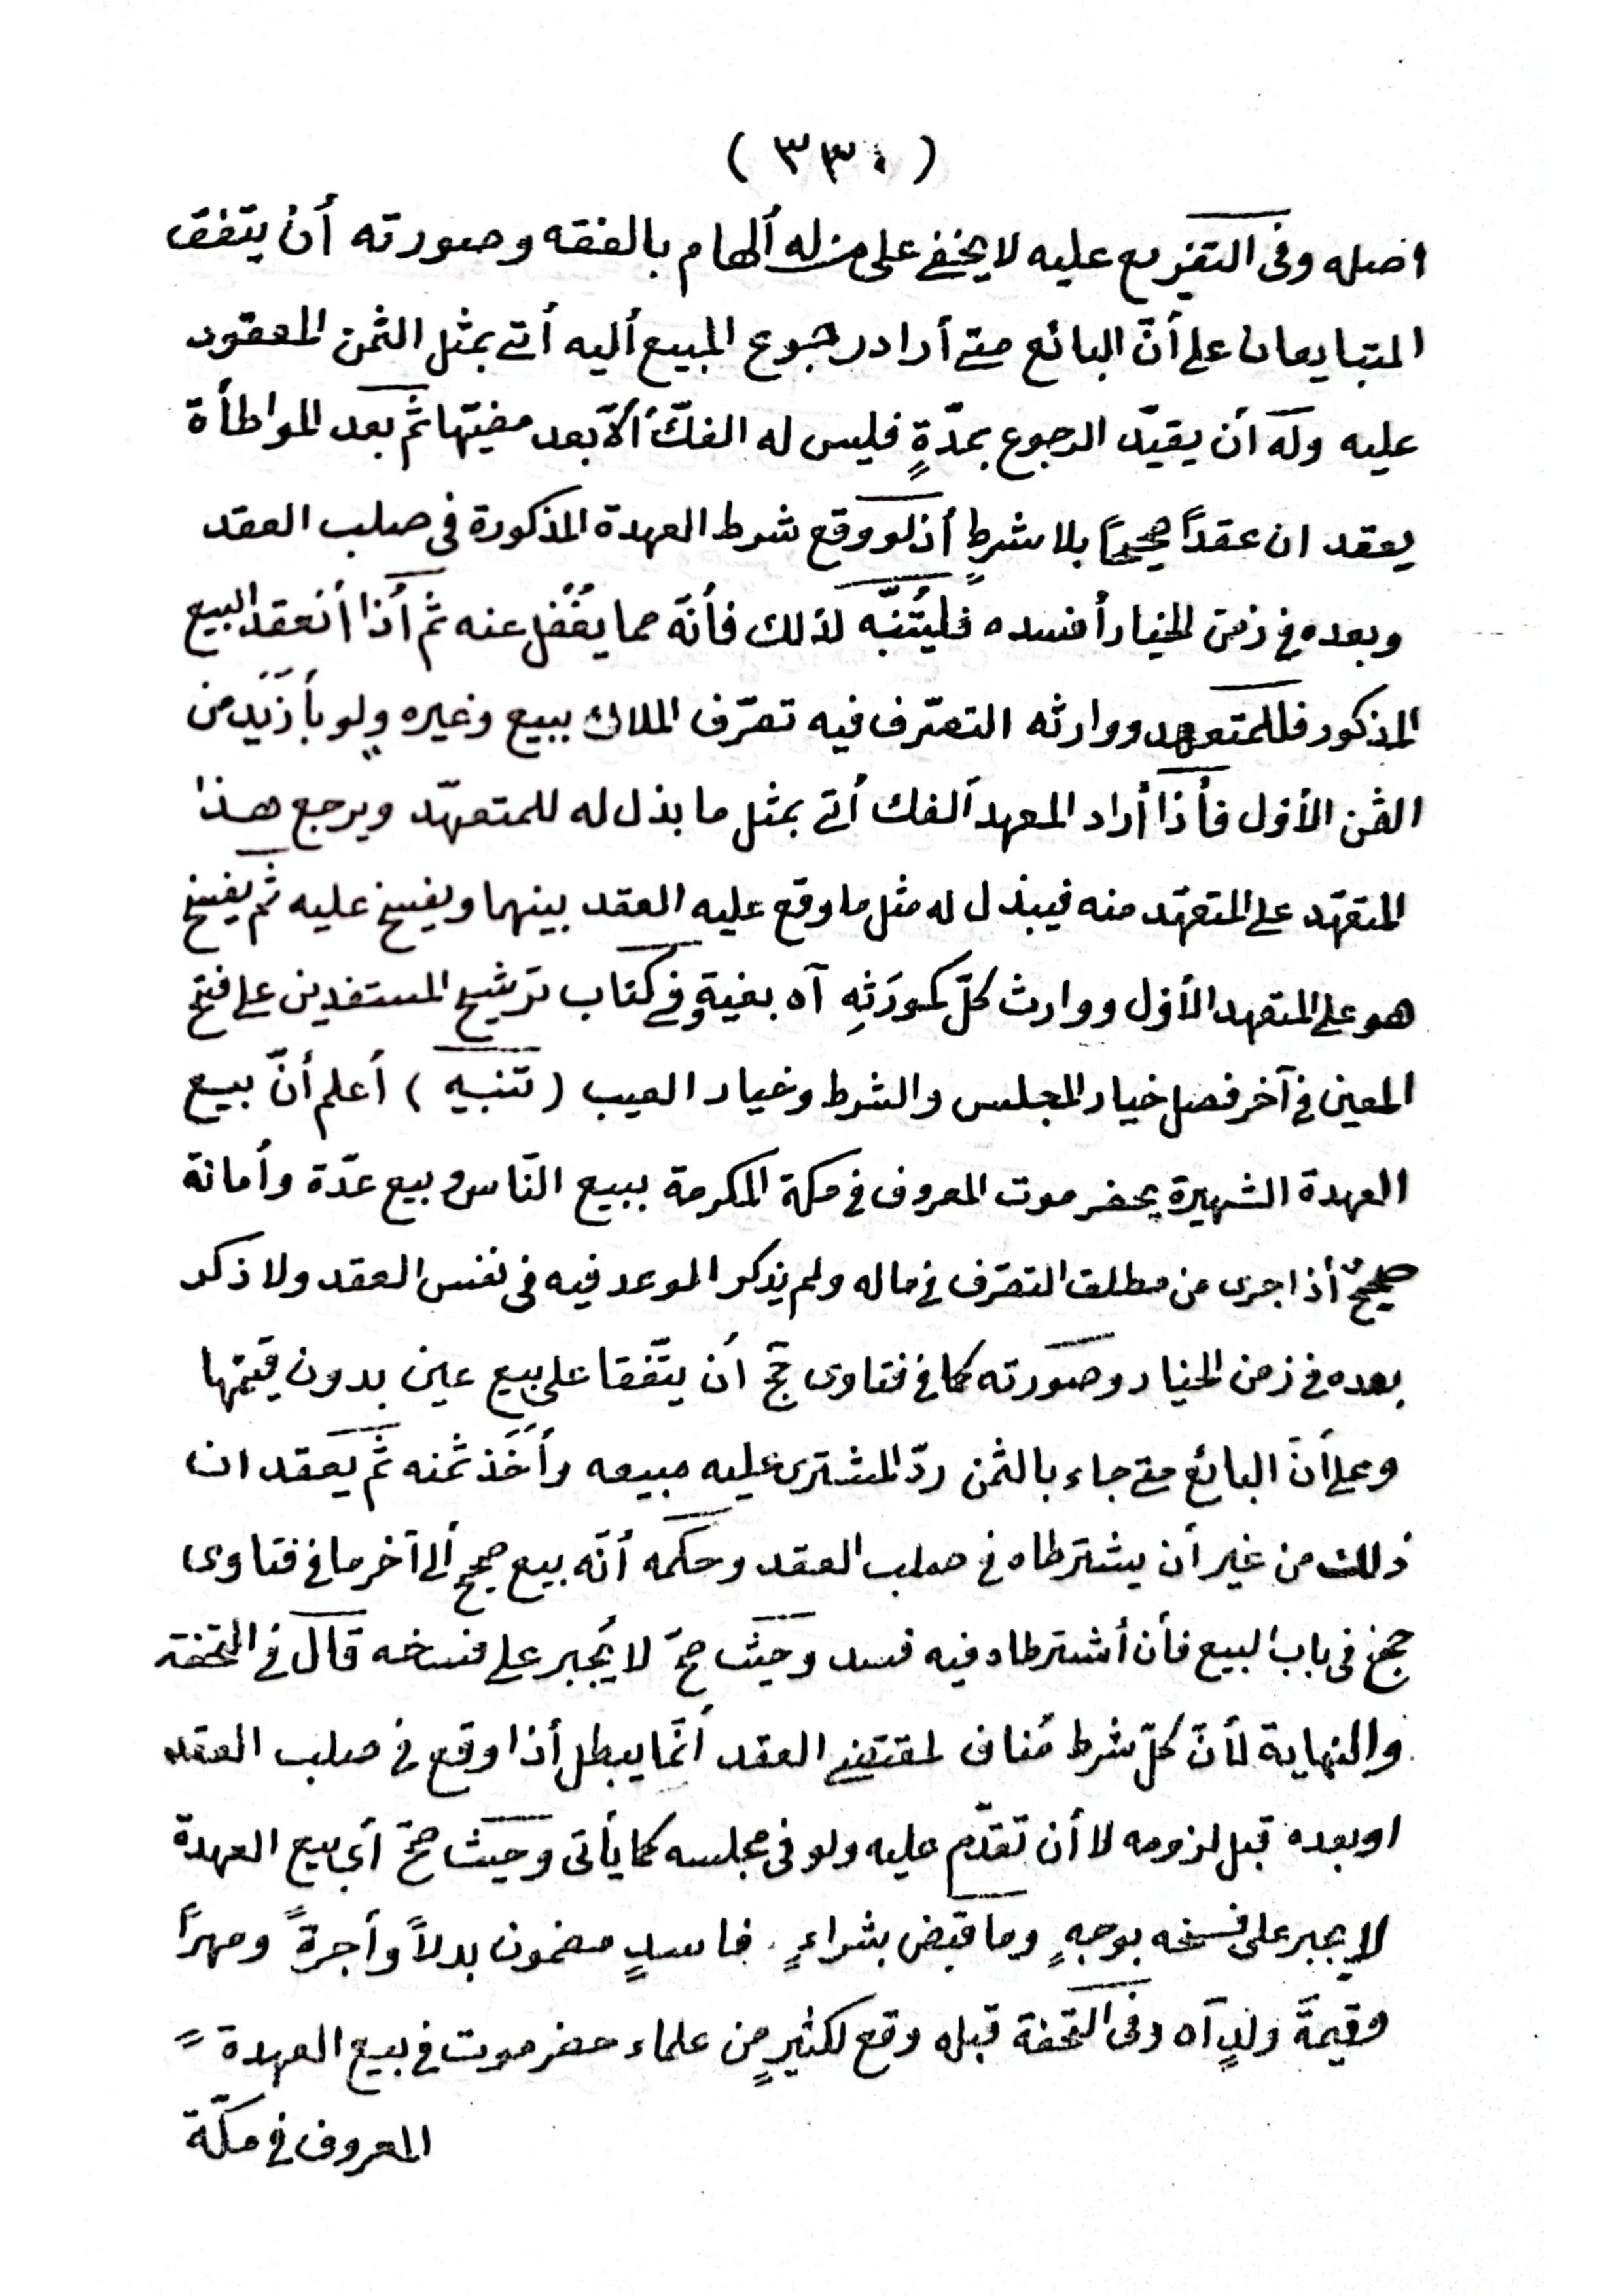 ( ٣٣٠ )
اصله وفى التفريع عليه لا يخفى على من له ألهام بالفقه وصورته أن يتفق
المتبايعان على أنّ البائع متى أراد رجوع المبيع أليه أتى بمثل الثمن المعقود
عليه وله أن يقيّد الرجوع بمدّةٍ فليس له الفكّ ألاّ بعد مضيّها ثم بعد المواطأة
يعقدان عقداً صحيحاً بلا شرطٍ أذ لو وقع شرط العهدة المذكورة فى صلب العقد
وبعده فى زمن الخيار أفسده فليُتنبّه لذلك فأنّه مما يغفل عنه ثم أذا أنعقد البيع
المذكور فللمتعهد ووارثه التصرّف فيه تصرّف الملاك ببيع وغيره ولو بأزيد من
الثمن الأوّل فأذا أراد المعهد الفك أتى بمثل ما بذل له للمتعهّد ويرجع هذا
المتعهّد على المتعهّد منه فيبذل له مثل ما وقع عليه العقد بينهما ويفسخ عليه ثم يفسخ
هو على المتعهد الأوّل ووارث كلّ كمورّثِه آه بغية وفى كتاب ترشيح المستفدين على فتح
المعين فى آخر فصل خيار المجلس والشرط وخيار العيب ( تنبيه ) أعلم أنّ بيع
العهدة الشهيرة بحضرموت المعروف فى مكة المكرمة ببيع النّاس وبيع عدّة وأمانة
صحيحٌ أذا جرى من مطلق التصرّف فى ماله ولم يذكر الموعد فيه فى نفس العقد ولا ذكر
بعده فى زمن الخيار وصورته كما فى فتاوى حج أن يتّفقا على بيع عين بدون قيمتها
وعلى أنّ البائع متى جاء بالثمن ردّ المشترى عليه مبيعه وأَخَذ ثمنه ثم يعقدان
ذلك من غير أن يشترطاه فى صلب العقد وحكمه أنّه بيع صحيح ألى آخر ما فى فتاوى
حج فى باب البيع فأن أشترطاه فيه فسد وحيث صحّ لا يُجبر على فسخه قال فى التحفة
والنهاية لأنّ كلّ شرط مُناف لمقتضى العقد أنّما يبطل أذا وقع فى صلب العقد
او بعده قبل لزومه لا أن تقدّم عليه ولو فى مجلسه كما يأتى وحيث صحّ أى بيع العهدة
لا يجبر على فسخه بوجهٍ وما قبض بشراءٍ فاسدٍ مضمون بدلاً وأجرةً ومهراً
وقيمةَ ولدٍ آه وفى التحفة قبله وقع لكثيرٍ من علماء حضرموت فى بيع العهدة
المعروف فى مكّة